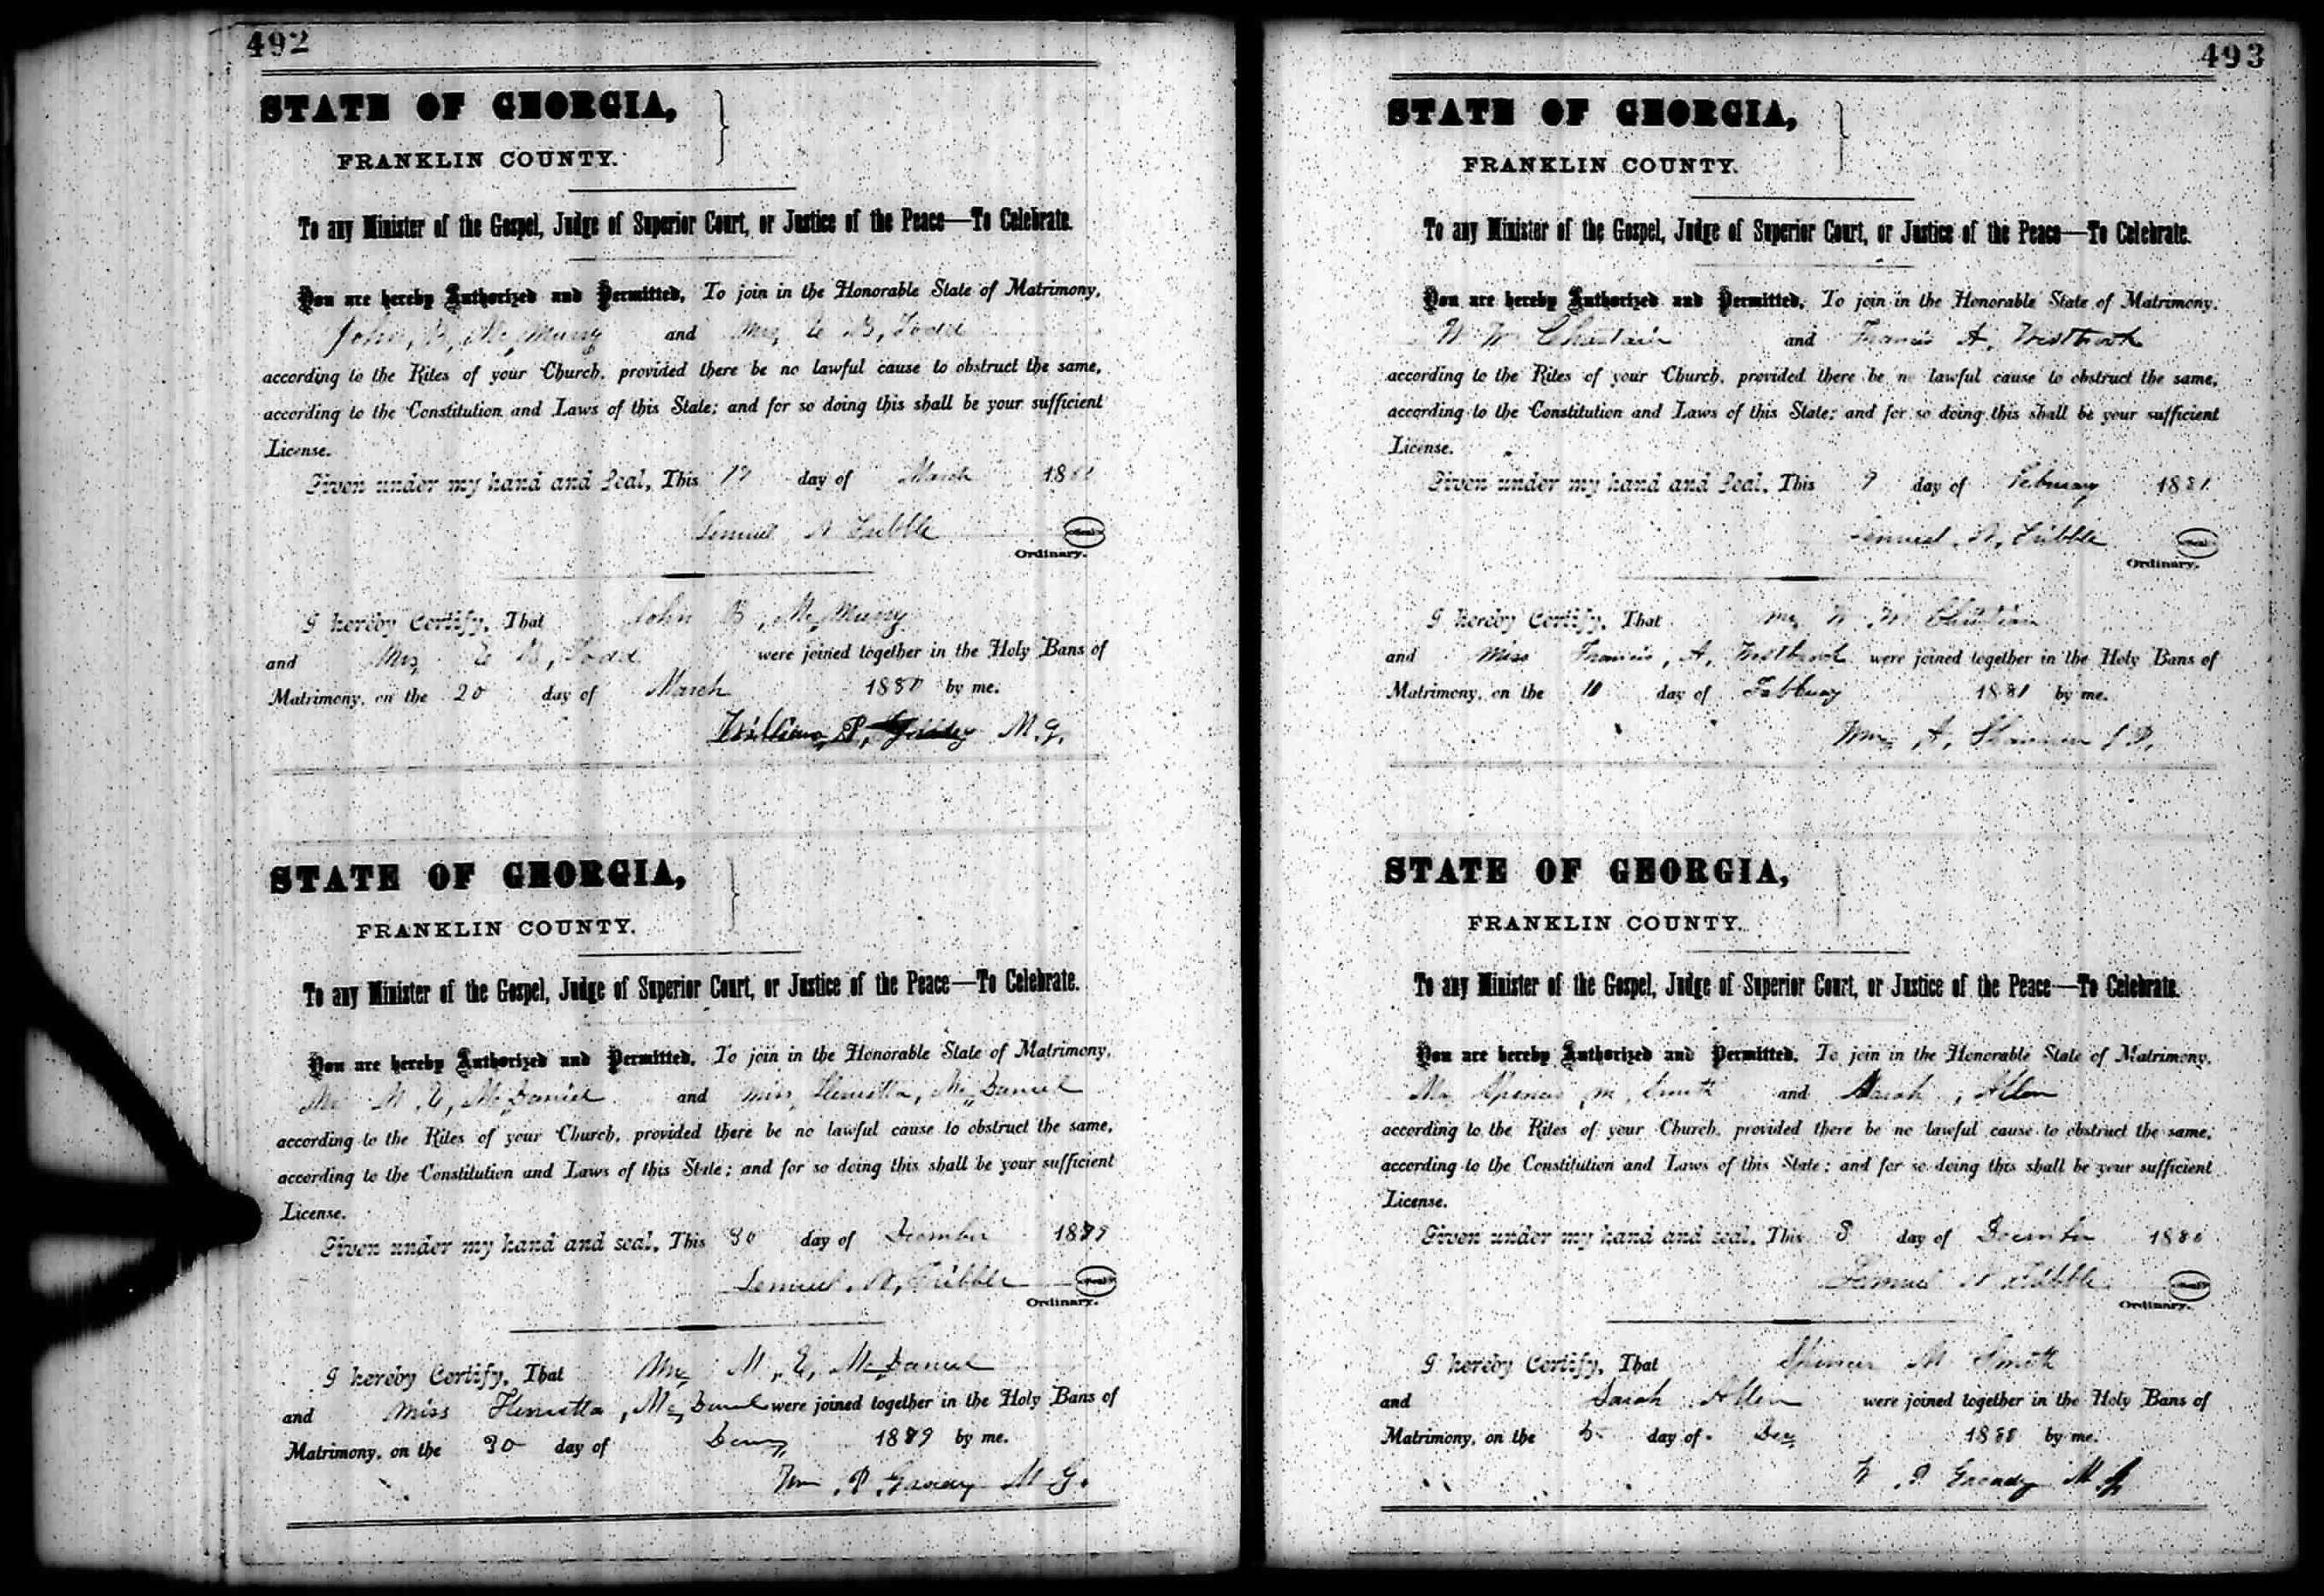 492
STATE OF GEORGIA,
FRANKLIN COUNTY.
To any Minister of the Gospel, Judge of Superior Court, or Justice of the Peace—To Celebrate.
You are hereby Authorized and Permitted, To join in the Honorable State of Matrimony,
John, B, McMurry and Mrs B, Todd
according to the Rites of your Church, provided there be no lawful cause to obstruct the same,
according to the Constitution and Laws of this State; and for so doing this shall be your sufficient
License.
Given under my hand and Seal, This day of March
Lemuel N Tribble
Ordinary.
I hereby Certify, That John B, McMurry
and Mrs B, Todd were joined together in the Holy Bans of
Matrimony, on the 20 day of March 1880 by me.
William, P, M. G.
STATE OF GEORGIA,
FRANKLIN COUNTY.
To any Minister of the Gospel, Judge of Superior Court, or Justice of the Peace—To Celebrate.
You are hereby Authorized and Permitted, To join in the Honorable State of Matrimony,
Mr M. E, McDaniel and miss Henrietta, McDaniel
according to the Rites of your Church, provided there be no lawful cause to obstruct the same,
according to the Constitution and Laws of this State; and for so doing this shall be your sufficient
License.
Given under my hand and seal, This 30 day of December 1879
Lemuel, N, Tribble
Ordinary.
I hereby Certify, That Mr, M, E, McDaniel
and Miss Henrietta, McDaniel were joined together in the Holy Bans of
Matrimony, on the 30 day of 1879 by me.
Wm P. M G.
493
STATE OF GEORGIA,
FRANKLIN COUNTY.
To any Minister of the Gospel, Judge of Superior Court, or Justice of the Peace—To Celebrate.
You are hereby Authorized and Permitted, To join in the Honorable State of Matrimony,
W M Chastain and Francis A, Westbrook
according to the Rites of your Church, provided there be no lawful cause to obstruct the same,
according to the Constitution and Laws of this State; and for so doing this shall be your sufficient
License.
Given under my hand and Seal, This 9 day of February 1881
Lemuel, N, Tribble
Ordinary.
I hereby Certify, That Mr W M
and Miss Francis, A, Westbrook were joined together in the Holy Bans of
Matrimony, on the 10 day of 1881 by me.
Wm, A, J P,
STATE OF GEORGIA,
FRANKLIN COUNTY.
To any Minister of the Gospel, Judge of Superior Court, or Justice of the Peace—To Celebrate.
You are hereby Authorized and Permitted, To join in the Honorable State of Matrimony,
Mr Spencer M, Smith and Sarah, Allen
according to the Rites of your Church, provided there be no lawful cause to obstruct the same,
according to the Constitution and Laws of this State; and for so doing this shall be your sufficient
License.
Given under my hand and seal, This 3 day of December 1880
Lemuel N Tribble
Ordinary.
I hereby Certify, That Spencer M Smith
and Sarah Allen were joined together in the Holy Bans of
Matrimony, on the 5 day of Dec 1880 by me.
W. P Grady M G